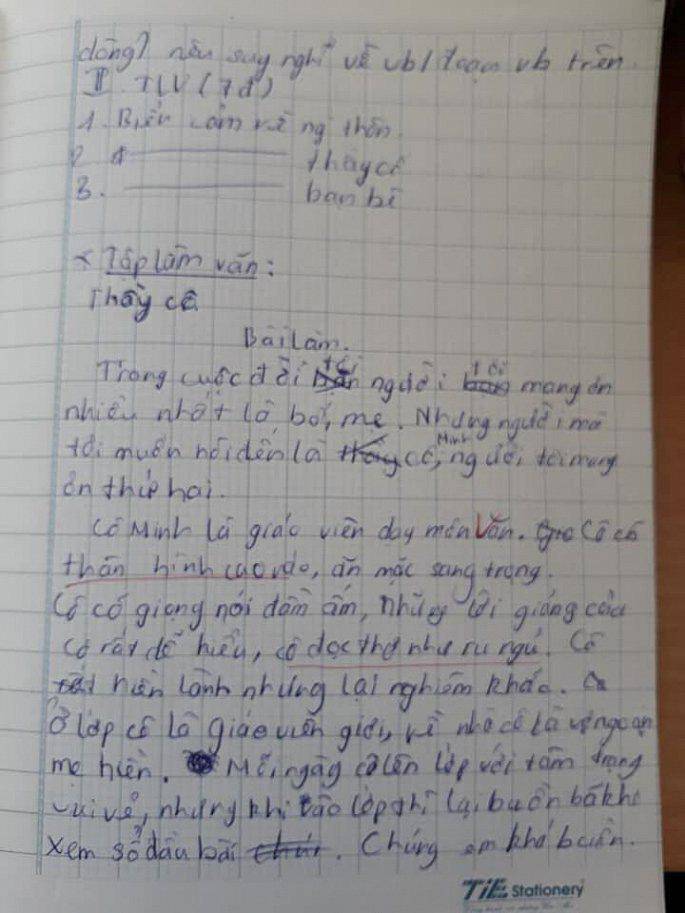 dòng) nêu suy nghĩ về vb/đoạn vb trên.
II. TLV (7đ)
1. Biểu cảm về ng thân.
2. ———— thầy cô
3. ———— bạn bè
* Tập làm văn:
Thầy cô
Bài làm.
Trong cuộc đời tôi người tôi mang ơn
nhiều nhất là bố, mẹ. Nhưng người mà
tôi muốn nói đến là cô Minh, người tôi mang
ơn thứ hai.
Cô Minh là giáo viên dạy môn Văn. Cô có
thân hình cao ráo, ăn mặc sang trọng.
Cô có giọng nói đầm ấm, những lời giảng của
cô rất dễ hiểu, cô đọc thơ như ru ngủ. Cô
hiền lành nhưng lại nghiêm khắc.
Ở lớp cô là giáo viên giỏi, về nhà cô là vợ ngoan
mẹ hiền. Mỗi ngày cô lên lớp với tâm trạng
vui vẻ, nhưng khi vào lớp thì lại buồn bã khi
xem sổ đầu bài. Chúng em khá buồn.
TiE Stationery